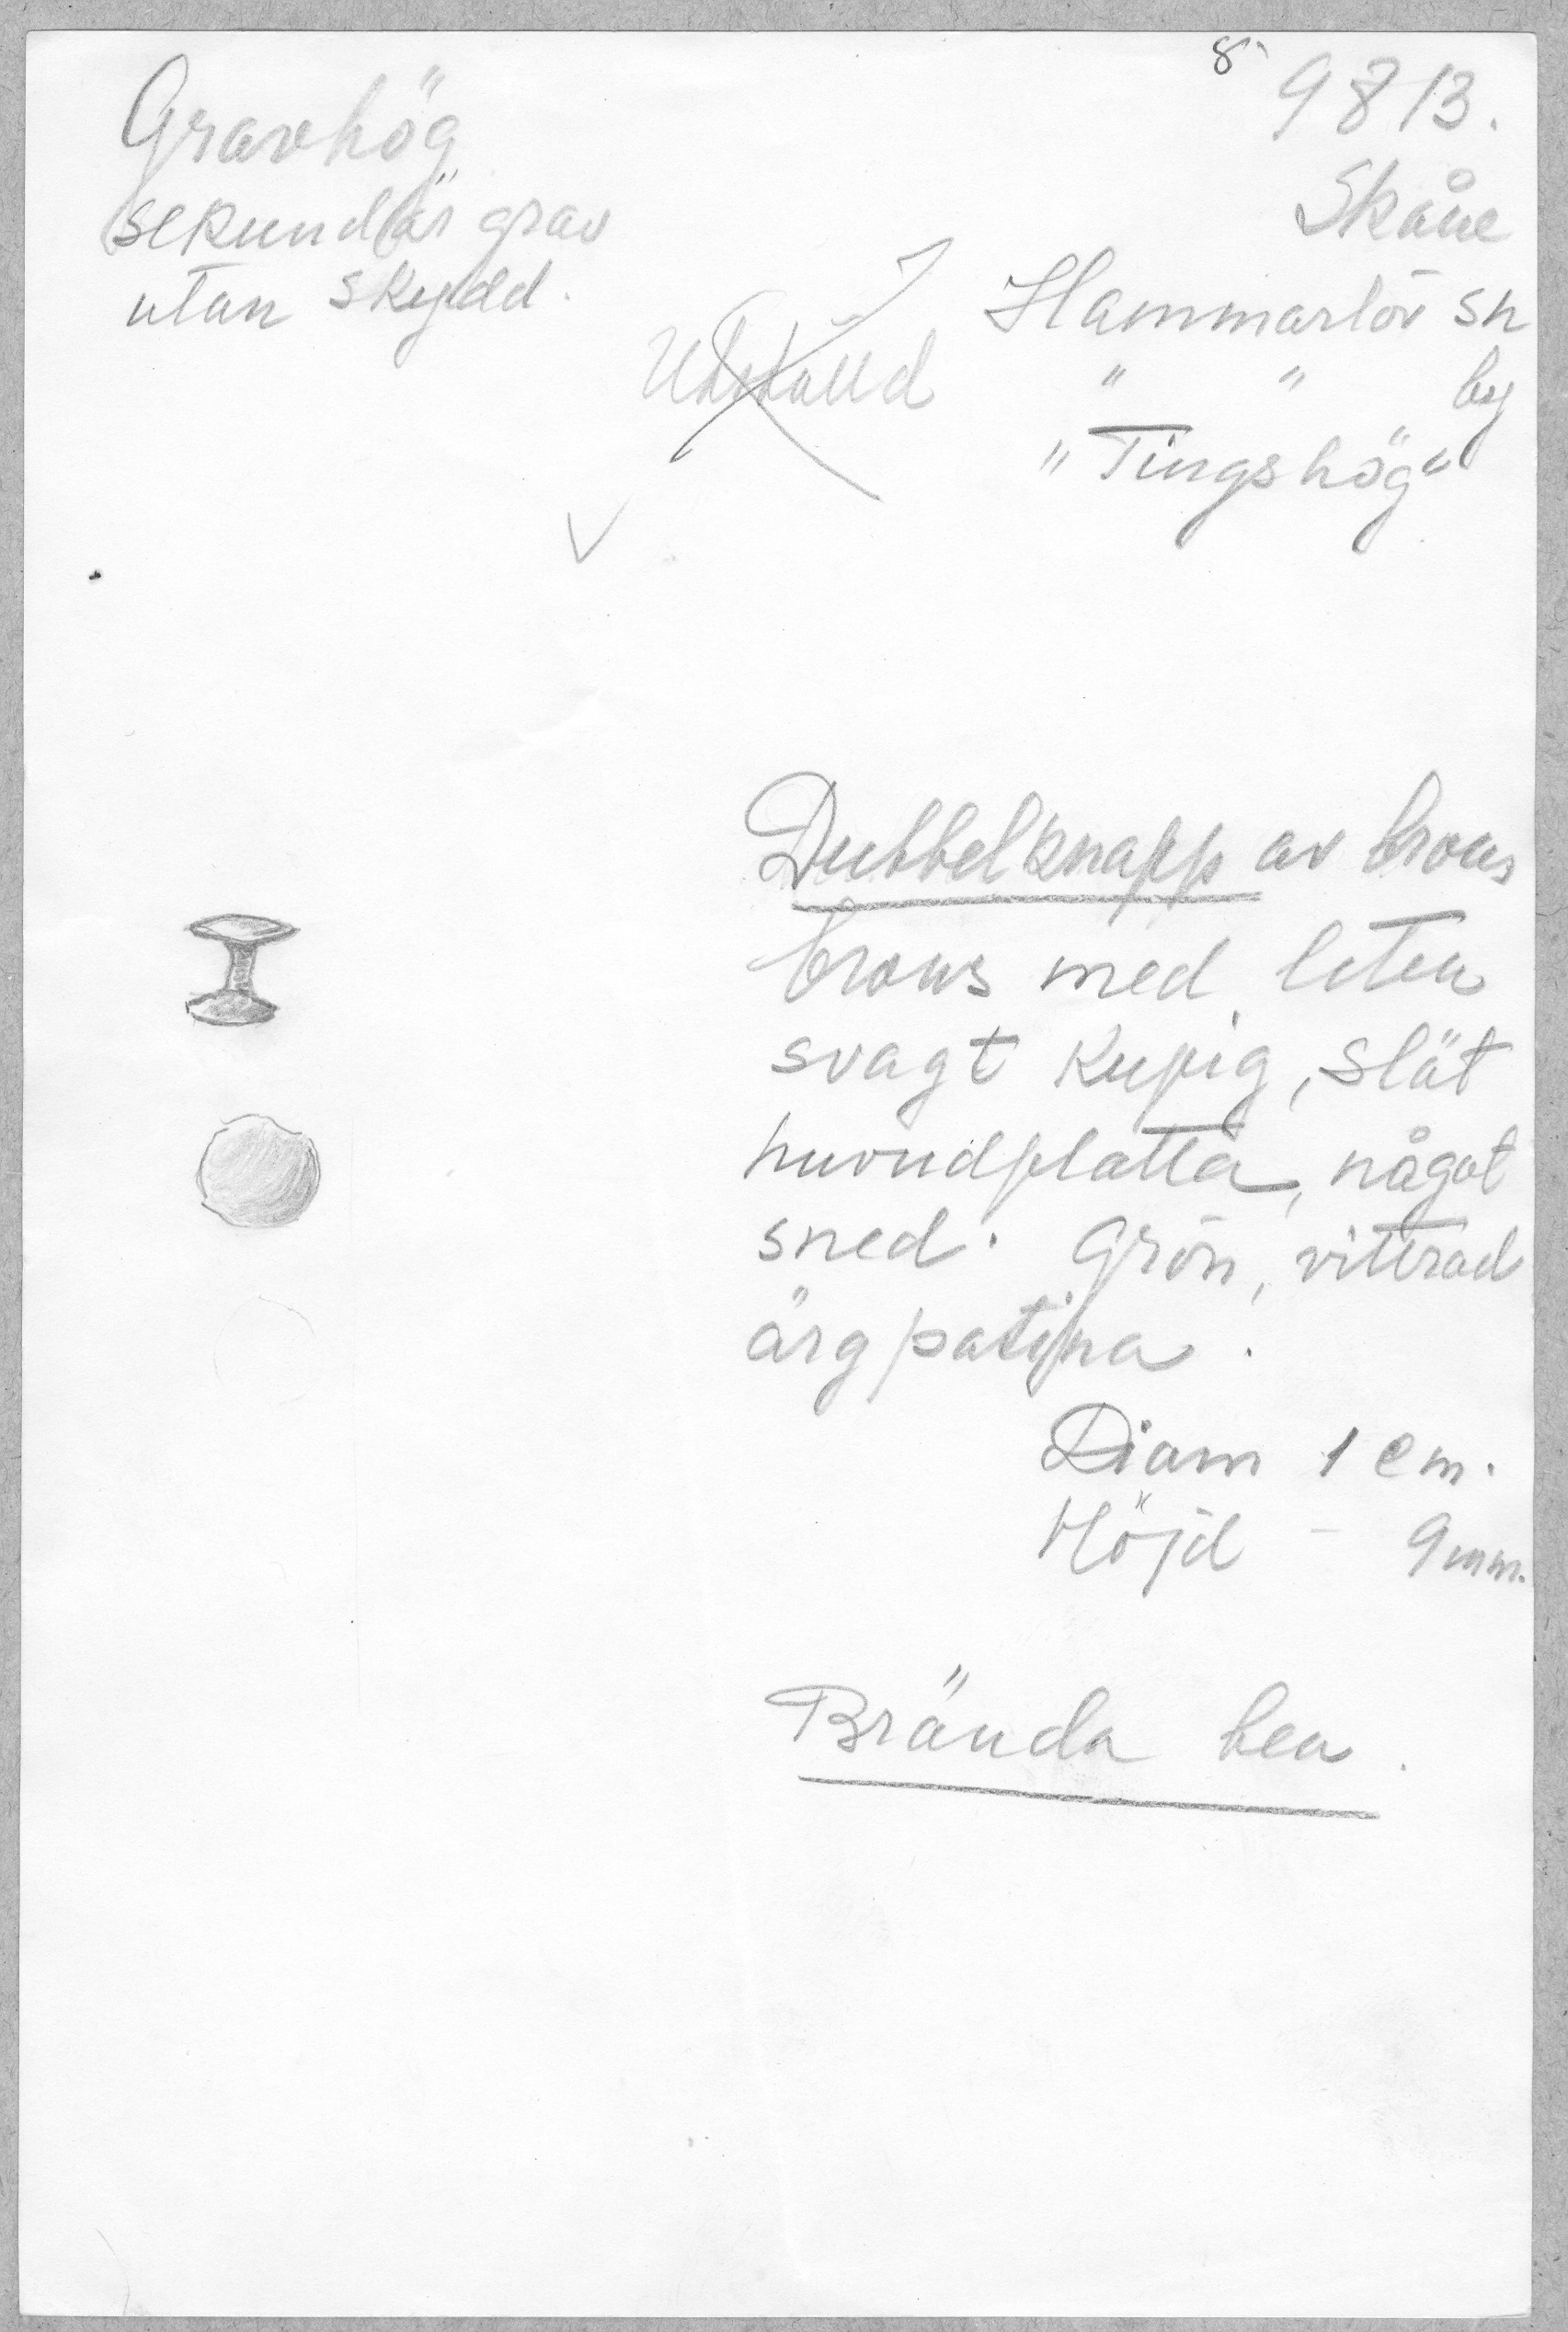 8
9813.
Gravhög
sekundär grav
utan skydd.
Skåne
Hammarlöv sn
" " by
"Tingshög"
Utställd
Dubbelknapp av brons
brons med liten
svagt kupig, slät
huvudplatta, något
sned. Grön, vittrad
ärgpatina.
Diam 1 cm.
Höjd - 9 mm.
Brända ben.